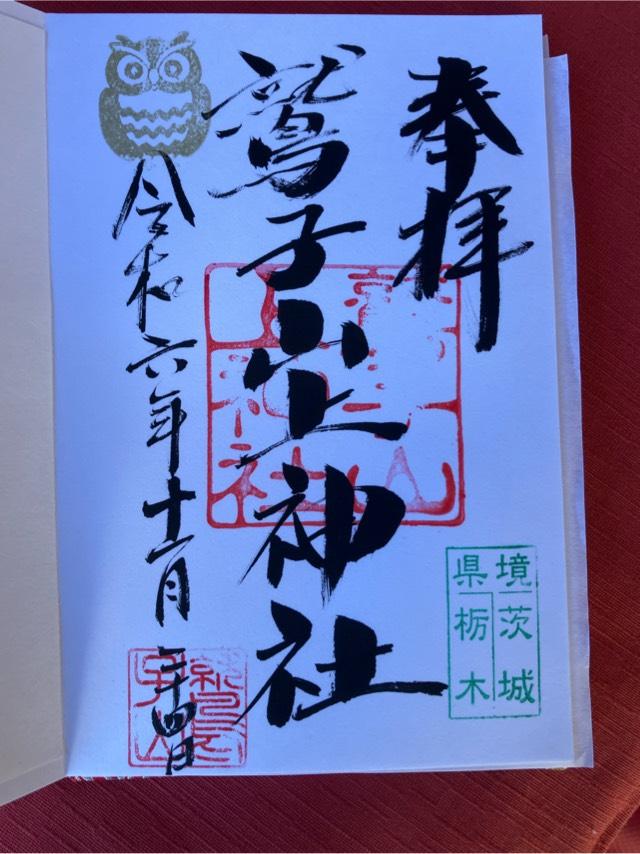 奉拝
鷲子山上神社
令和六年十一月廿四日
境 茨城
県 栃木